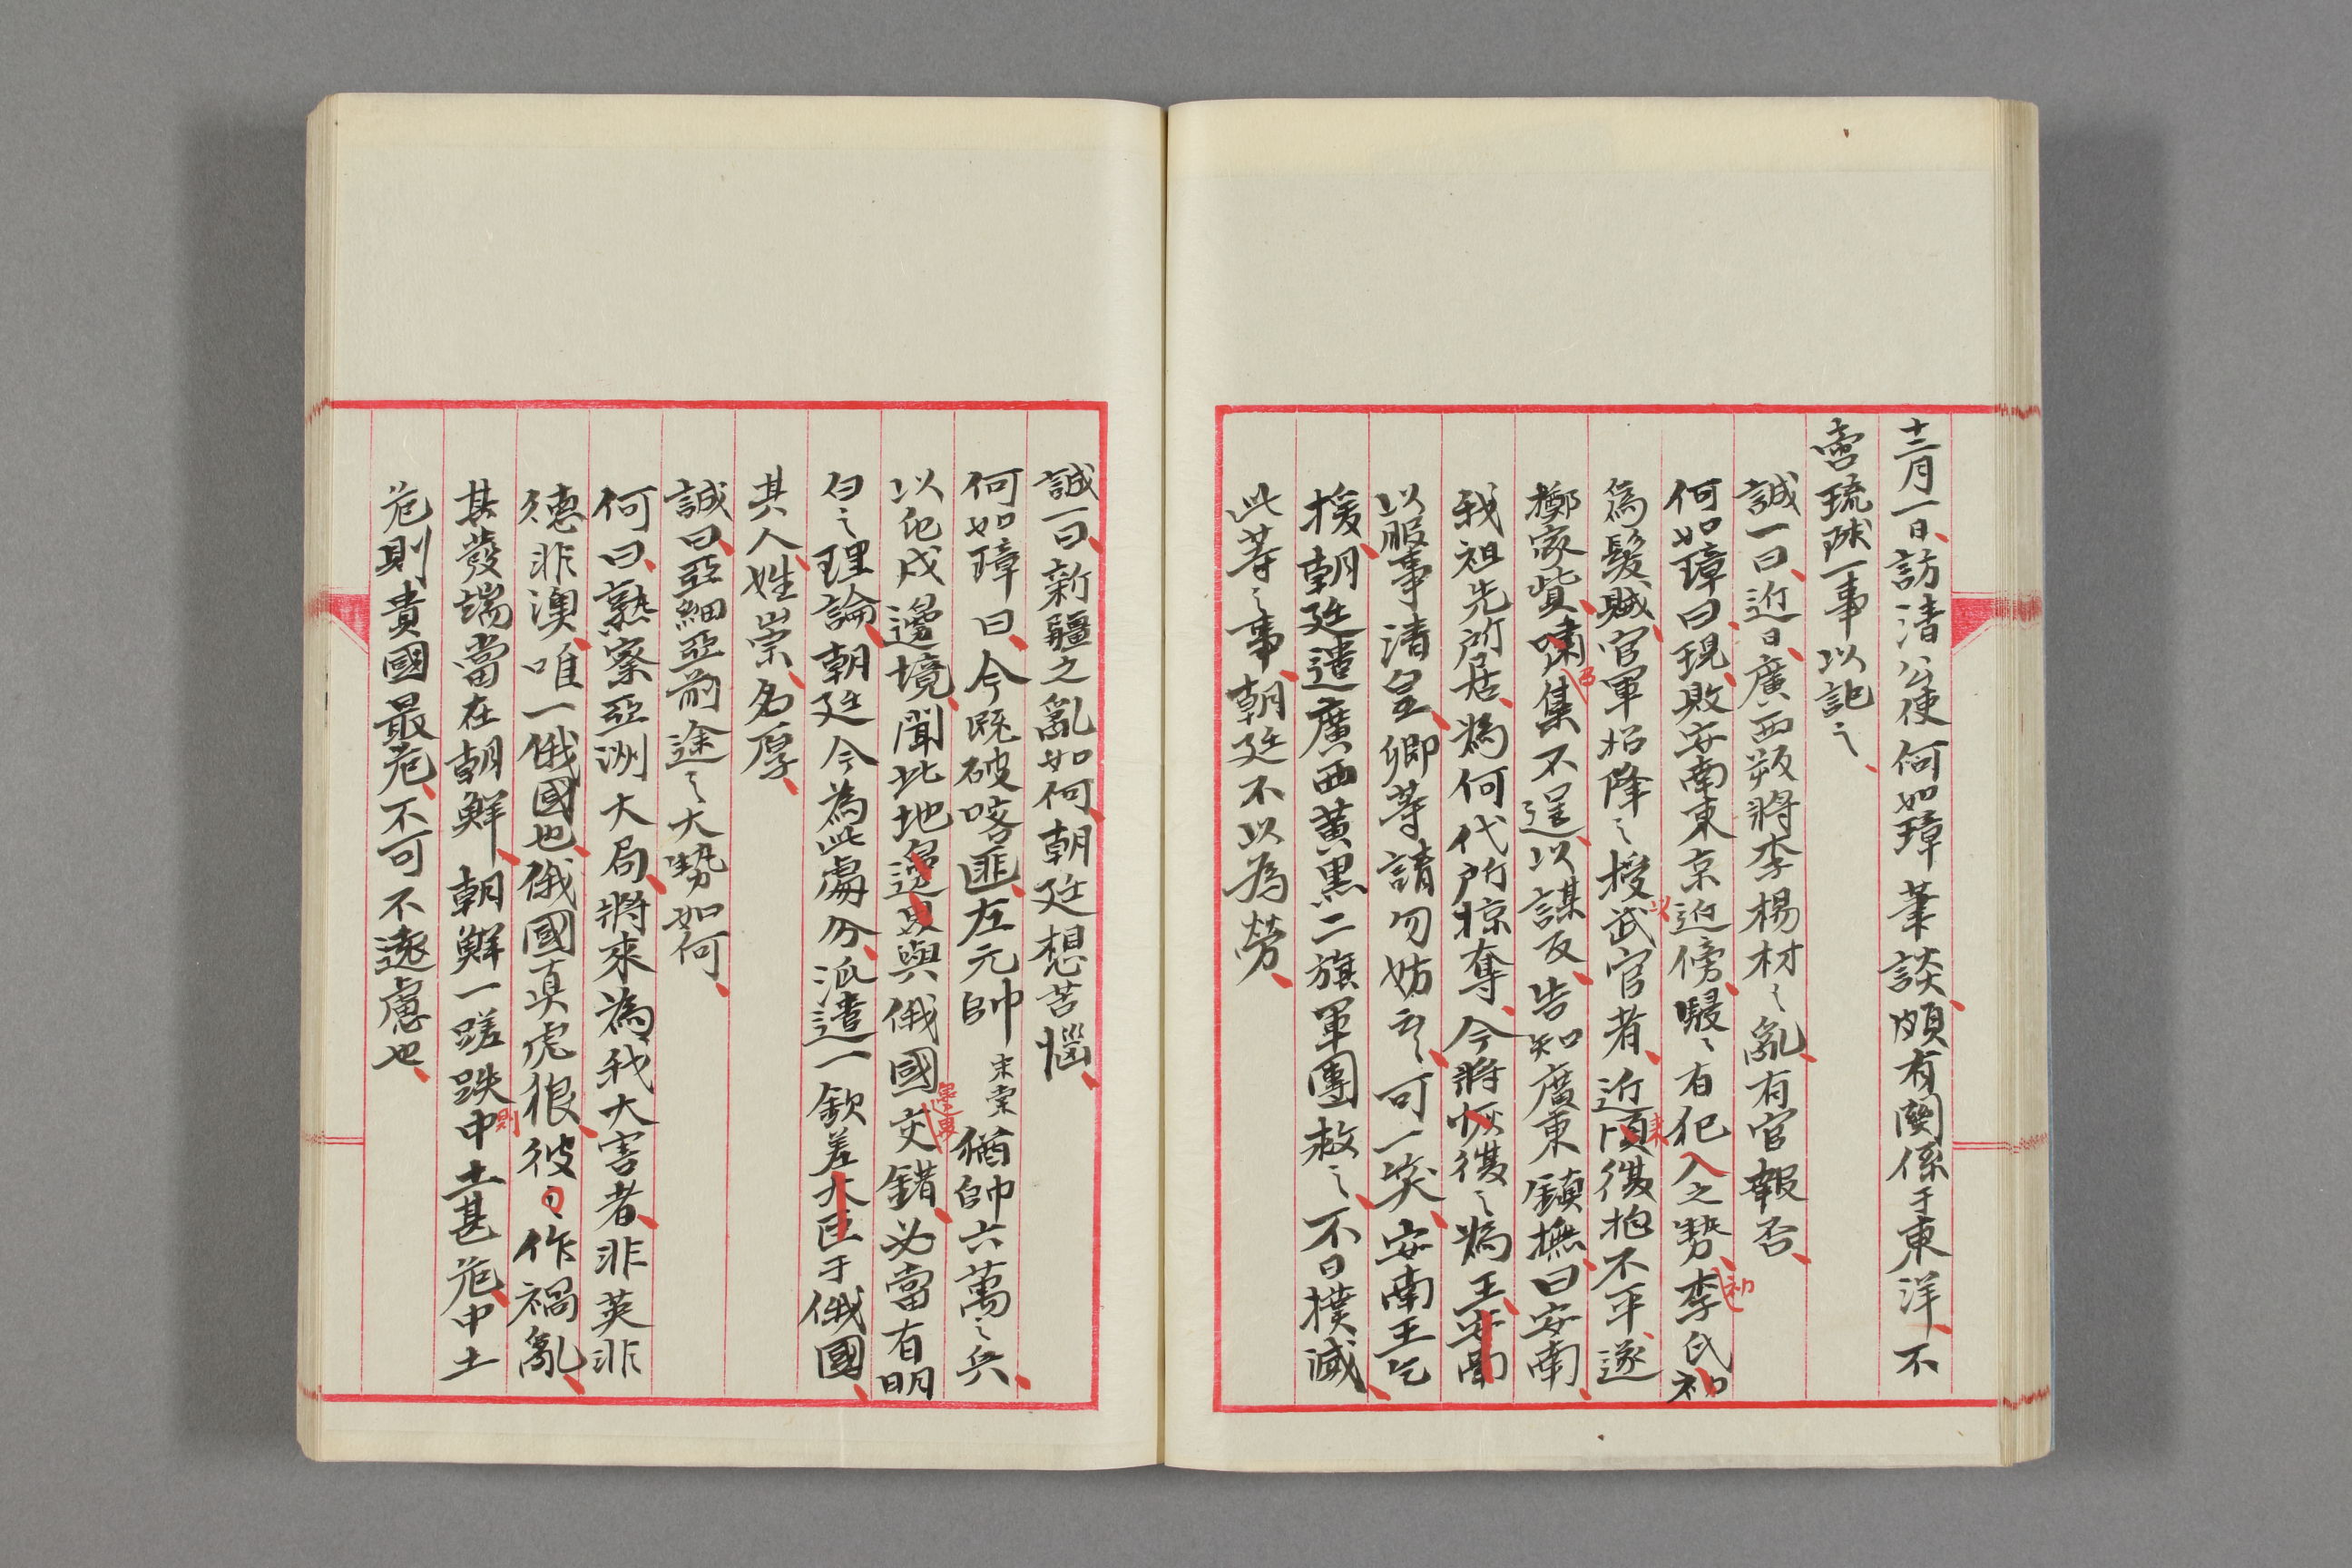 十二月一日、訪清公使何如璋筆談、頗有関係于東洋、不
啻琉球一事以記之、
誠一曰、近日、廣西叛将李楊材之亂、有官報否、
何如璋曰、現、敗安南東京近傍、駸〻有犯入之勢、初李氏初
為髮賊、官軍招降之授以武官者、近頃来復抱不平、遂
擲家貲、嘯集不逞、以謀反、告知廣東鎮撫、曰安南、
我祖先所居、為何代所掠奪、今将恢復之為王、安南
以服事清皇、卿等請勿妨之、可一笑、安南王乞
援、朝廷遣廣西黄黒二旗軍團救之、不日撲滅、
此等之事、朝廷不以為勞、
誠一曰、新疆之亂如何、朝廷想苦惱、
何如璋曰、今既破喀匪、左元帥宗棠猶帥六萬之兵、
以屯戍邊境、聞此地邊界與俄國邊界交錯、必當有明
白之理論、朝廷今為此處分、派遣一欽差大臣于俄國、
其人、姓崇、名厚、
誠曰、亞細亞前途之大勢如何、
何曰、熟察亞洲大局、将来為我大害者、非英非
德非澳、唯一俄國也、俄國真虎狼、彼〻作禍亂、
其發端當在朝鮮、朝鮮一蹉跌則中土甚危、中土
危則貴國最危、不可不遠慮也、